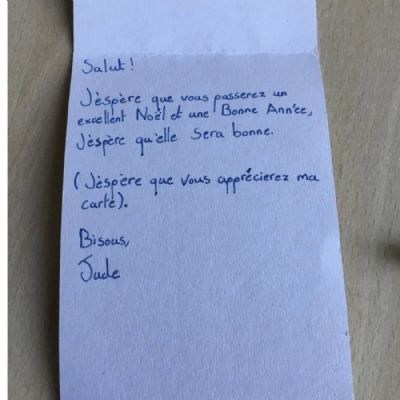 Salut!
Jéspère que vous passerez un
excellent Noël et une Bonne Année,
Jéspère qu'elle sera bonne.
(Jéspère que vous apprécierez ma
carte).
Bisous,
Jude